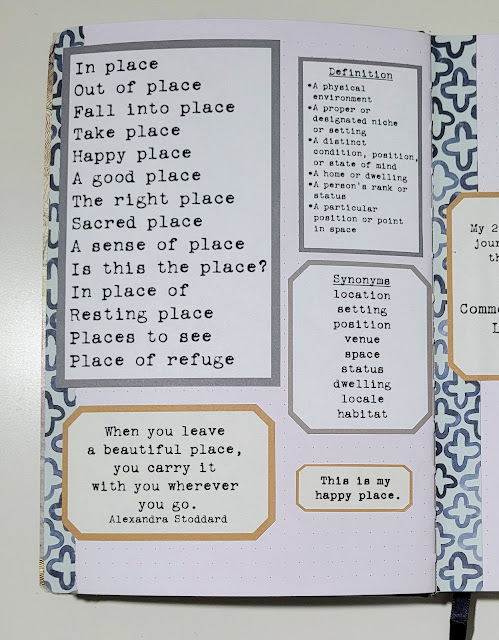 In place
Out of place
Fall into place
Take place
Happy place
A good place
The right place
Sacred place
A sense of place
Is this the place?
In place of
Resting place
Places to see
Place of refuge
When you leave
a beautiful place,
you carry it
with you wherever
you go.
Alexandra Stoddard
Definition
•A physical
environment
•A proper or
designated niche
or setting
•A distinct
condition, position,
or state of mind
•A home or dwelling
•A person's rank or
status
•A particular
position or point
in space
Synonyms
location
setting
position
venue
space
status
dwelling
locale
habitat
This is my
happy place.
My 2
jour
th
Comme
L